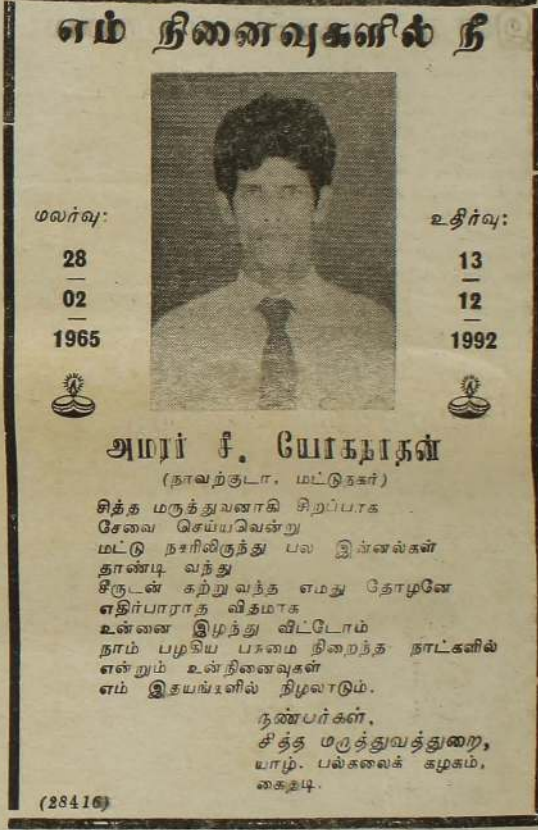 எம் நினைவுகளில் நீ
மலர்வு:
28
02
1965
உதிர்வு:
13
12
1992
அமரர் சீ. யோகநாதன்
(நாவற்குடா, மட்டுநகர்)
சித்த மருத்துவனாகி சிறப்பாக
சேவை செய்யவென்று
மட்டு நகரிலிருந்து பல இன்னல்கள்
தாண்டி வந்து
சீருடன் கற்றுவந்த எமது தோழனே
எதிர்பாராத விதமாக
உன்னை இழந்து விட்டோம்
நாம் பழகிய பசுமை நிறைந்த நாட்களில்
என்றும் உன்நினைவுகள்
எம் இதயங்களில் நிழலாடும்.
நண்பர்கள்,
சித்த மருத்துவத்துறை,
யாழ். பல்கலைக் கழகம்,
கைதடி.
(28416)